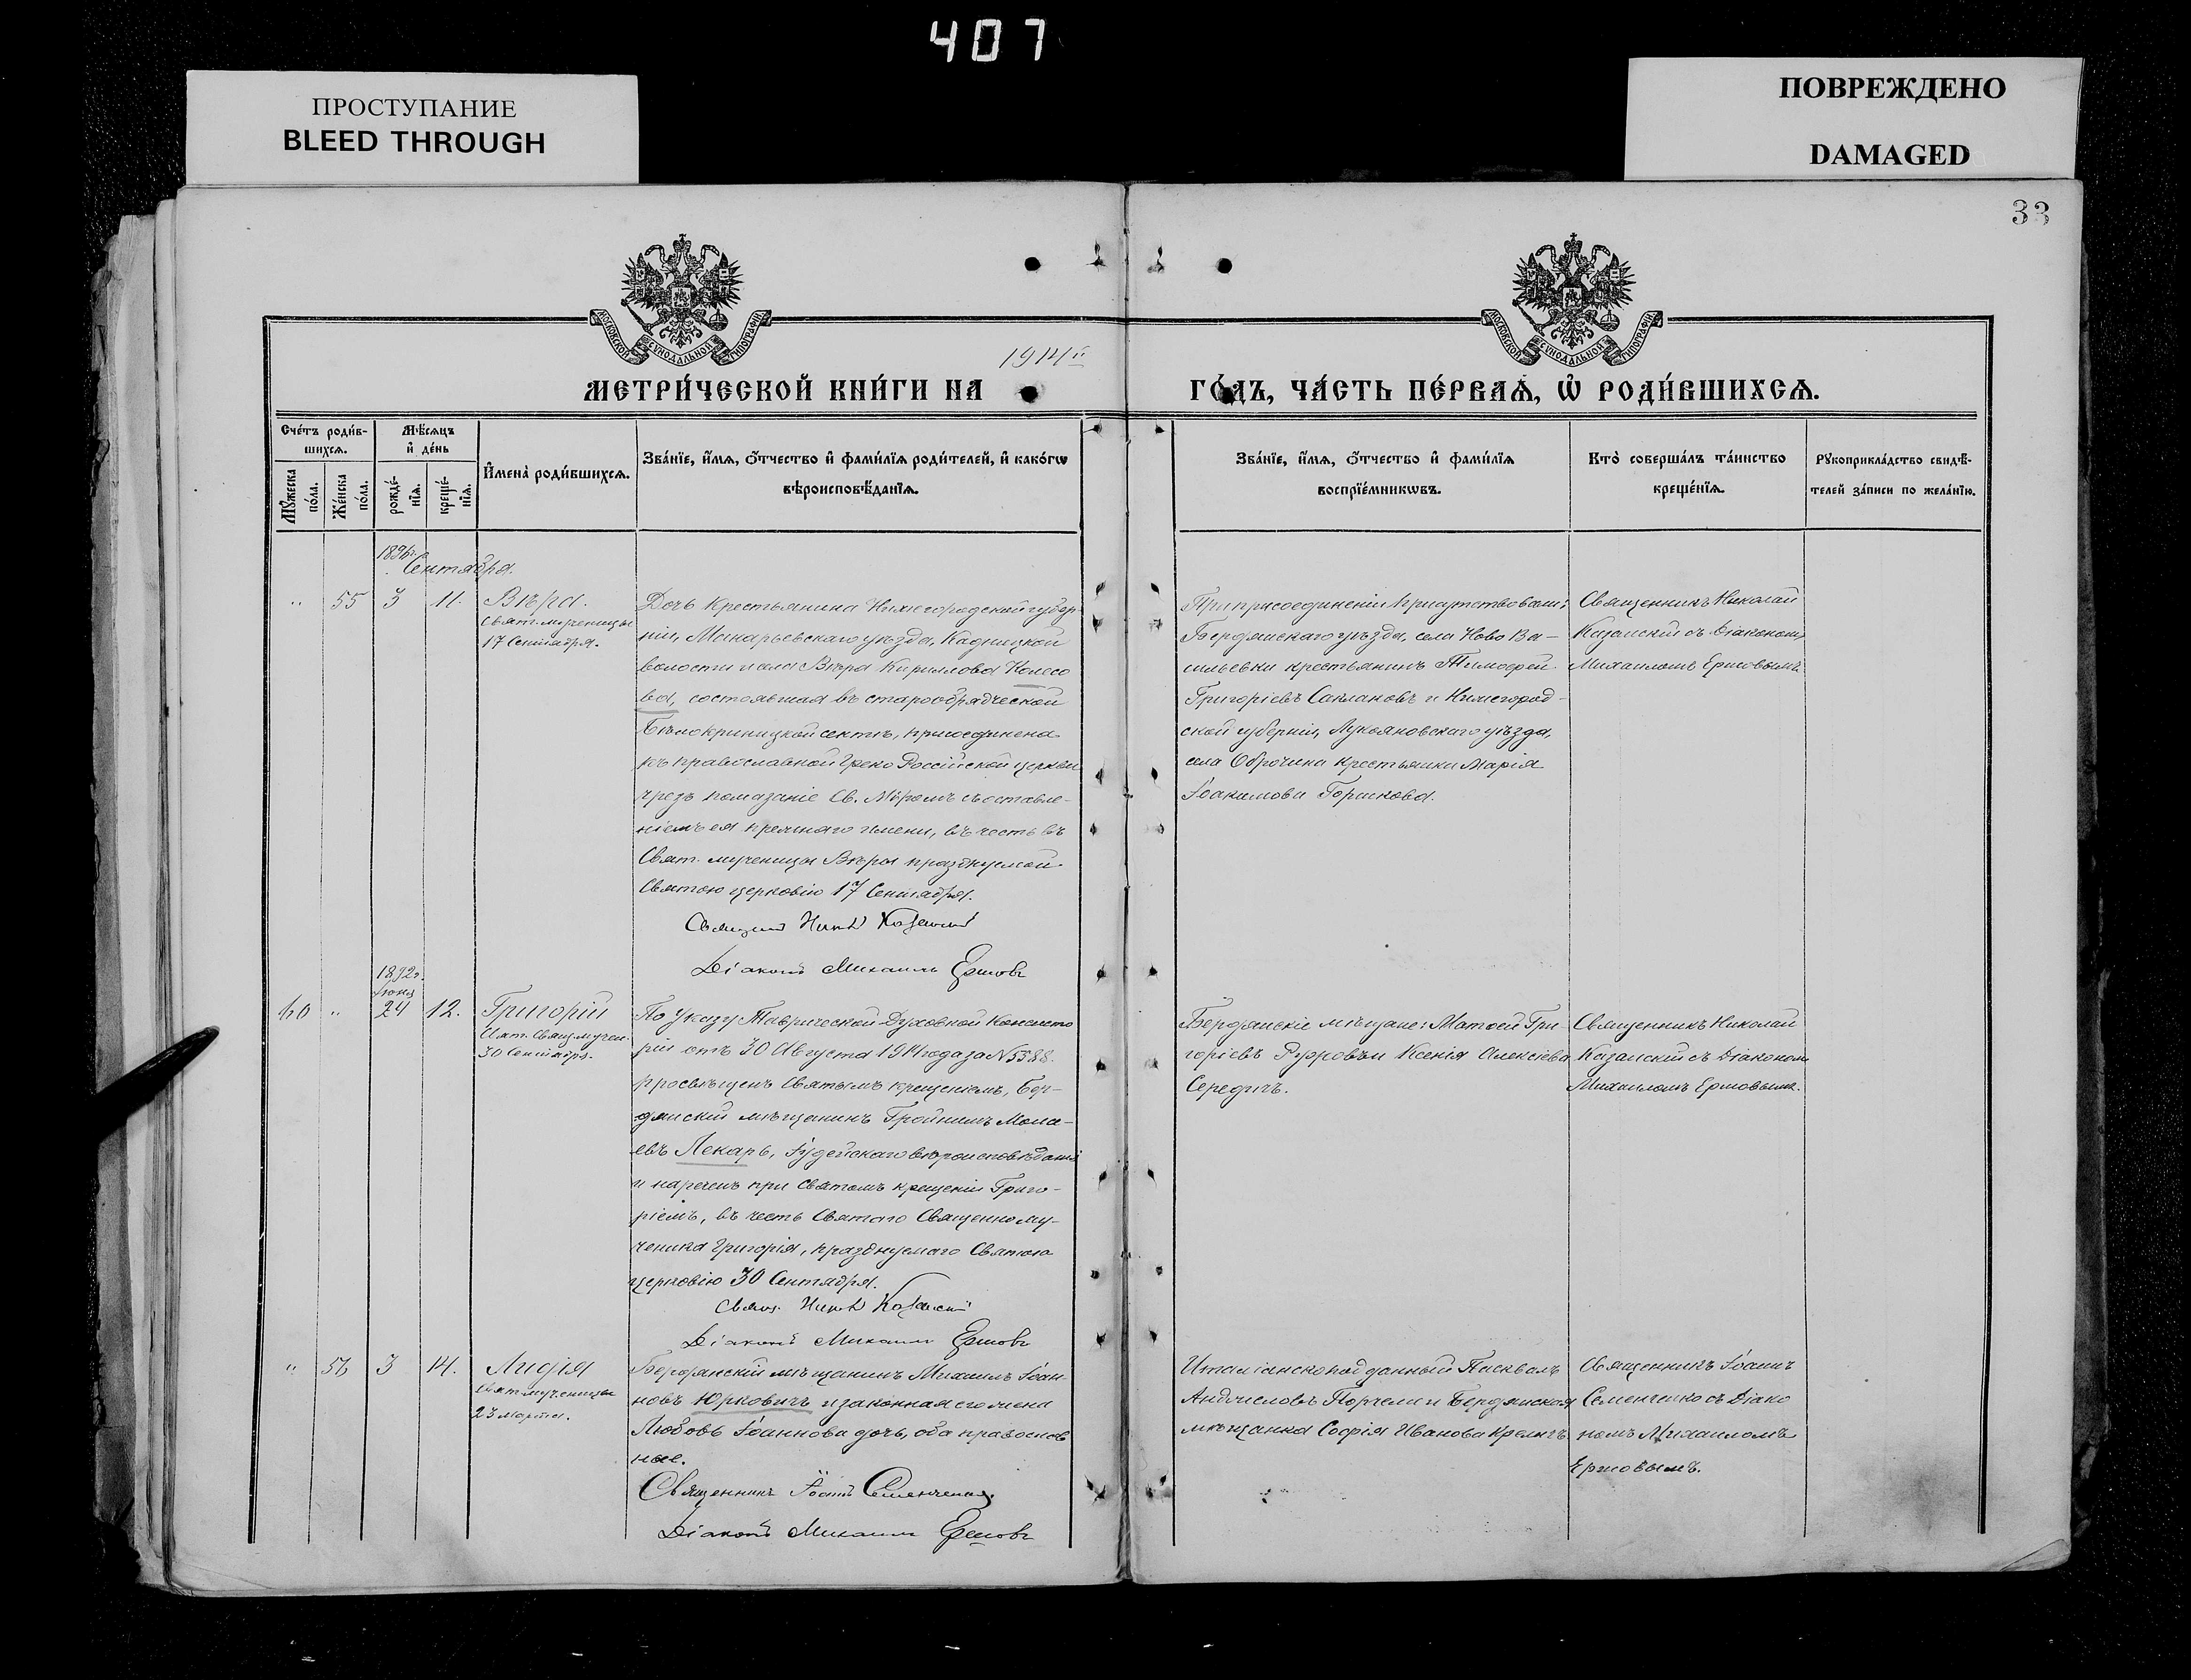 407
ПРОСТУПАНИЕ
BLEED THROUGH
ПОВРЕЖДЕНО
DAMAGED
33
МОСКОВСКОЙ СѴНОДАЛЬНОЙ ТИПОГРАФІИ
МОСКОВСКОЙ СѴНОДАЛЬНОЙ ТИПОГРАФІИ
1914
МЕТРИ́ЧЕСКОЙ КНИ́ГИ НА
ГО́ДЪ, ЧА́СТЬ ПЕ́РВАѦ, Ѡ҆ РОДИ́ВШИХСѦ.
Сче́тъ роди́в-
шихсѧ.
Мѣ́сѧцъ
и҆ де́нь
Мꙋ́жеска
по́ла.
Же́нска
по́ла.
рожде́-
нїѧ.
креще́-
нїѧ.
И҆мена̀ роди́вшихсѧ.
Зва́нїе, и҆́мѧ, ѻ҆́тчество и҆ фами́лїѧ роди́телей, и҆ како́гѡ
вѣроисповѣ́данїѧ.
Зва́нїе, и҆́мѧ, ѻ҆́тчество и҆ фами́лїѧ
воспрїе́мникѡвъ.
Кто̀ соверша́лъ та́инство
креще́нїѧ.
Рꙋкоприкла́дство свидѣ́-
телей за́писи по жела́нїю.
1896г.
Сентября.
" 55 3 11. Вѣра.
Свят. мученицы
17 Сентября.
Дочь крестьянина Нижегородской губер-
ніи, Макарьевскаго уѣзда, Кадницкой
волости и села Вѣра Кириллова Колесо
ва, состоявшая въ старообрядческой
Бѣлокриницкой сектѣ, присоединена
къ православной Греко Россійской церкви
чрезъ помазаніе Св. Мѵромъ съ оставле-
ніемъ ея прежняго имени, въ честь въ
Свят. мученицы Вѣры празднуемой
Святою церковію 17 Сентября.
Священник Никол Казанскій
Діаконъ Михаилъ Ершовъ
При присоединеніи присутствовали:
Бердянскаго уѣзда, села Ново Ва-
сильевки крестьянинъ Тимофей
Григоріевъ Саклаковъ и Нижегород-
ской губерніи, Лукояновскаго уѣзда,
села Оброчина крестьянка Марія
Іоакимова Горшкова.
Священникъ Николай
Казанскій съ Діакономъ
Михаиломъ Ершовымъ.
1892г.
Іюня
60 " 24 12. Григорій
Свящ.мучен.
30 Сентября.
По указу Таврической Духовной Консисто
ріи отъ 30 Августа 1914 года за № 5388.
просвѣщенъ Святымъ крещеніемъ, Бер-
дянскій мѣщанинъ Гройнимъ Моис-
евъ Лекарь, Іудейскаго вѣроисповѣданія
и нареченъ при Святомъ крещеніи Григо-
ріемъ, въ честь Святаго Священному-
ченика Григорія, празднуемаго Святою
церковію 30 Сентября.
Свящ. Никол Казанскій
Діаконъ Михаилъ Ершовъ
Бердянскіе мѣщане: Матѳей Гри-
горіевъ и Ксенія Алексѣева
Середичъ.
Священникъ Николай
Казанскій съ Діакономъ
Михаиломъ Ершовымъ.
" 56 3 14. Лидія
Свят. мученицы
23 марта.
Бердянскій мѣщанинъ Михаилъ Іоан-
новъ Юрковичъ и законная его жена
Любовь Іоаннова дочь, оба православ
ные.
Священникъ Іоаннъ Семенченко
Діаконъ Михаилъ Ершовъ
Италіанскоподданный Пасквалъ
Анджеловъ Порчели и Бердянская
мѣщанка Софія Иванова
Священникъ Іоаннъ
Семенченко съ Діако
номъ Михаиломъ
Ершовымъ.